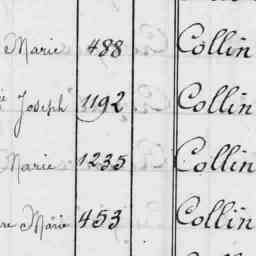 Marie 488 Collin
Joseph 1192 Collin
Marie 1235 Collin
re Marie 453 Collin